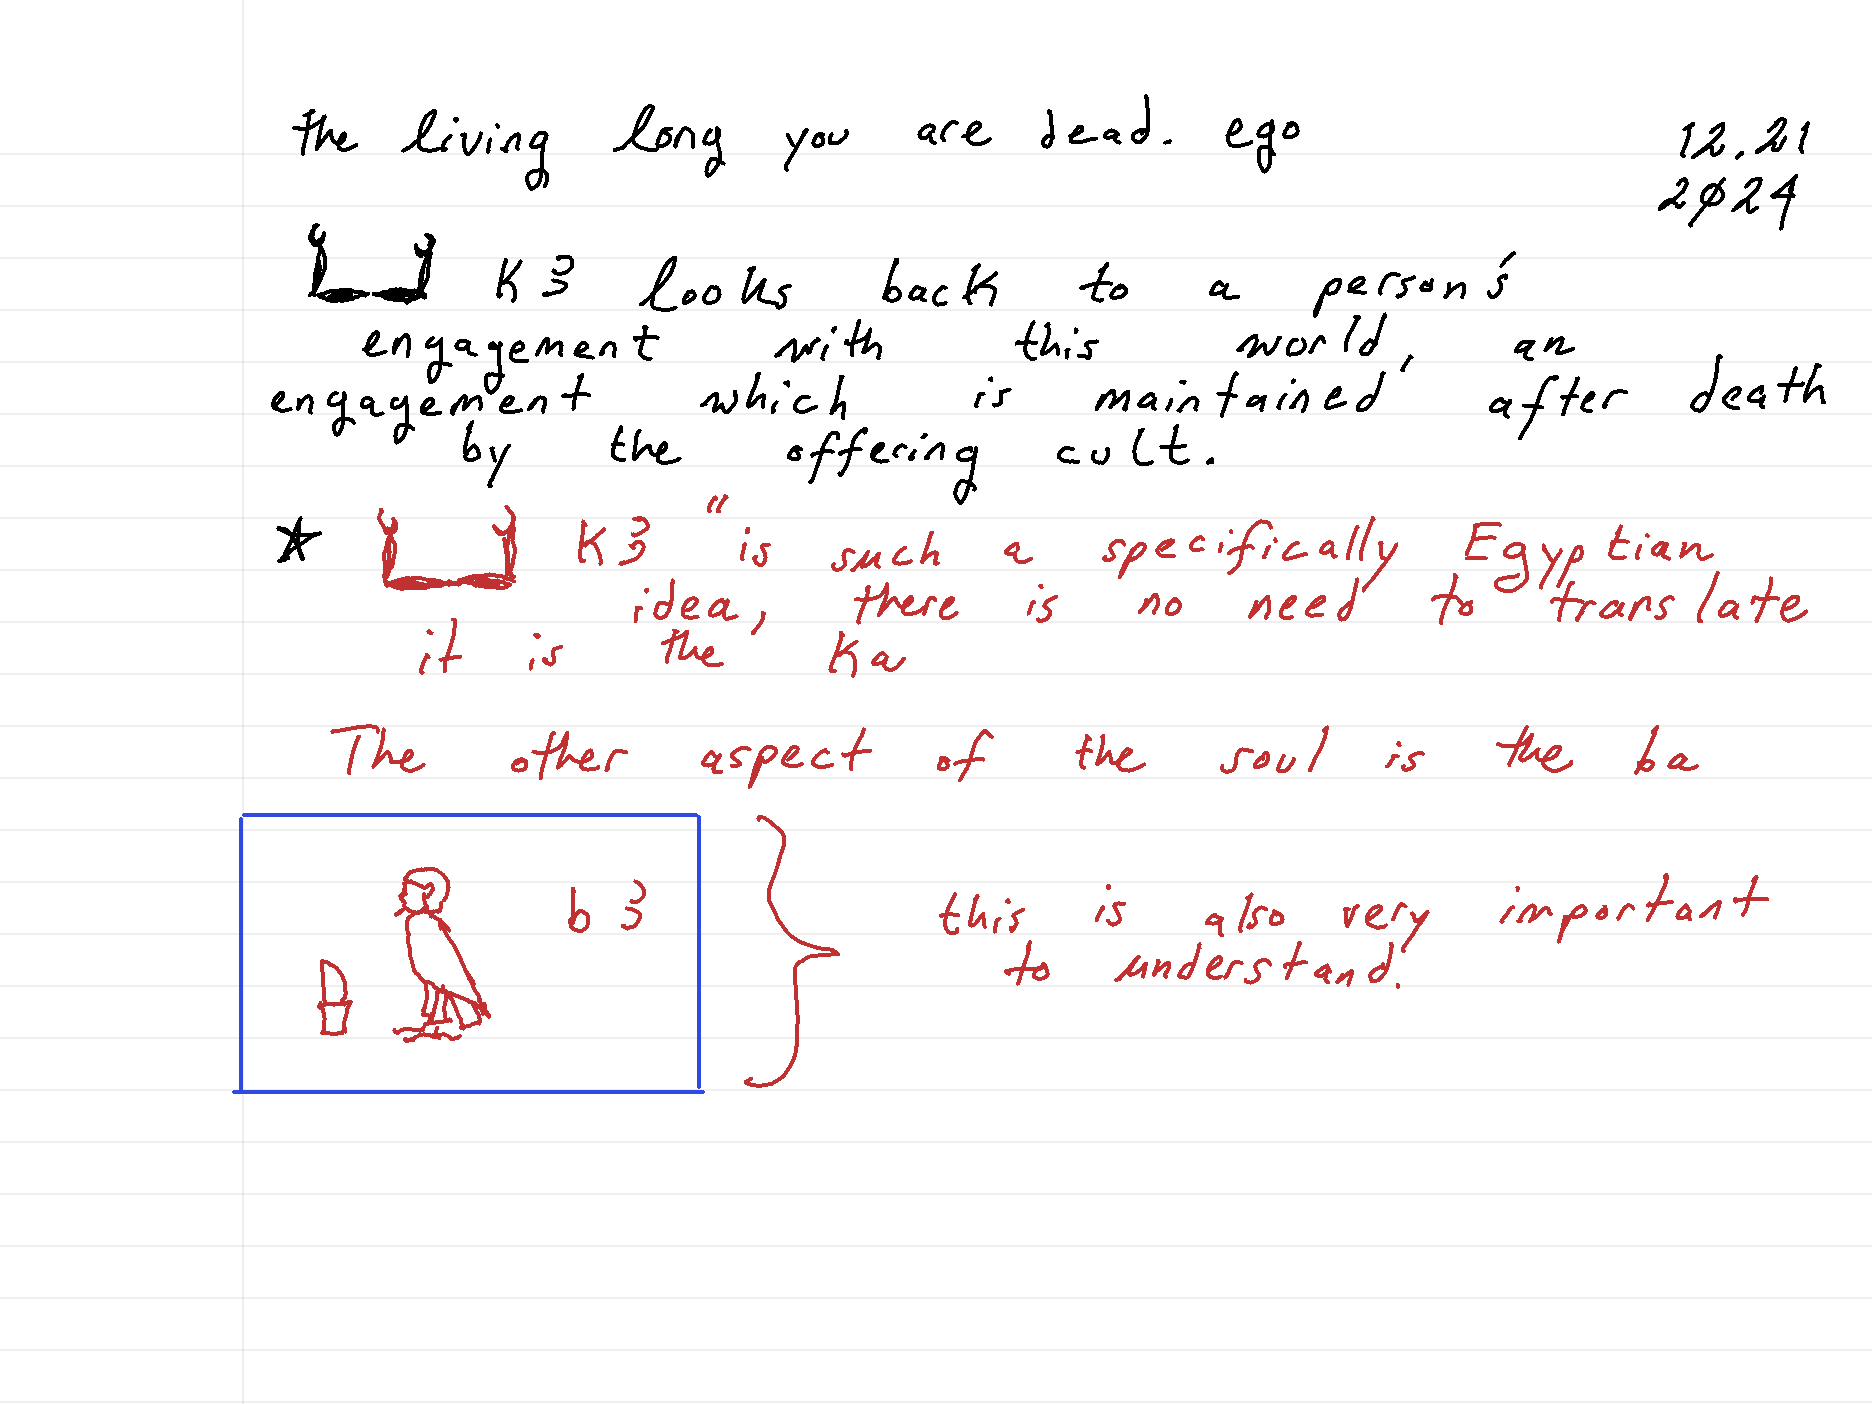 the living long you are dead. ego
12.21
2024
K3 looks back to a person's
engagement with this world, an
engagement which is maintained after death
by the offering cult.
* K3 "is such a specifically Egyptian
idea, there is no need to translate
it is the Ka
The other aspect of the soul is the ba
b3
this is also very important
to understand.